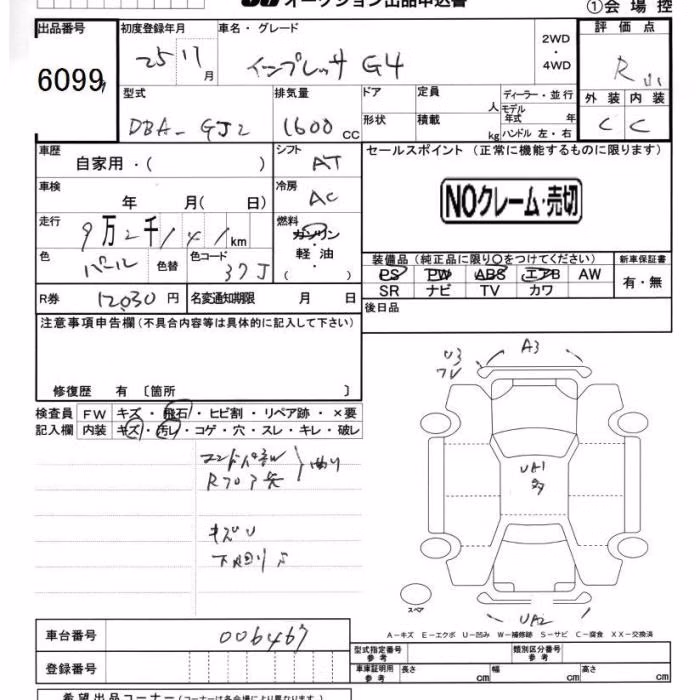 オークション出品申込書
①会場控
出品番号
6099
初度登録年月
25 11月
車名・グレード
インプレッサ G4
2WD・4WD
評価点
R
外装 内装
C C
型式
DBA-GJ2
排気量
1600cc
ドア
形状
定員 人
積載 kg
ディーラー・並行
モデル年式 年
ハンドル 左・右
車歴
自家用・( )
シフト
AT
車検
年 月( 日)
冷房
AC
走行
9万2千141km
燃料
ガソリン・軽油・( )
色
パール
色替
色コード
37J
R券
12030円
名変通知期限 月 日
セールスポイント (正常に機能するものに限ります)
NOクレーム・売切
装備品 (純正品に限り○をつけてください)
PS PW ABS エアB AW
SR ナビ TV カワ
新車保証書
有・無
後日品
注意事項申告欄(不具合内容等は具体的に記入して下さい)
修復歴 有 〔箇所 〕
検査員記入欄
FW キズ・飛石・ヒビ割・リペア跡・×要
内装 キズ・汚レ・コゲ・穴・スレ・キレ・破レ
キズU
A3
U3
UA1
多
UA2
スペア
A-キズ E-エクボ U-凹み W-補修跡 S-サビ C-腐食 XX-交換済
車台番号
006467
登録番号
型式指定番号 参考
類別区分番号 参考
車庫証明用 参考
長さ cm
幅 cm
高さ cm
希望出品コーナー(コーナーは各会場により異なります)